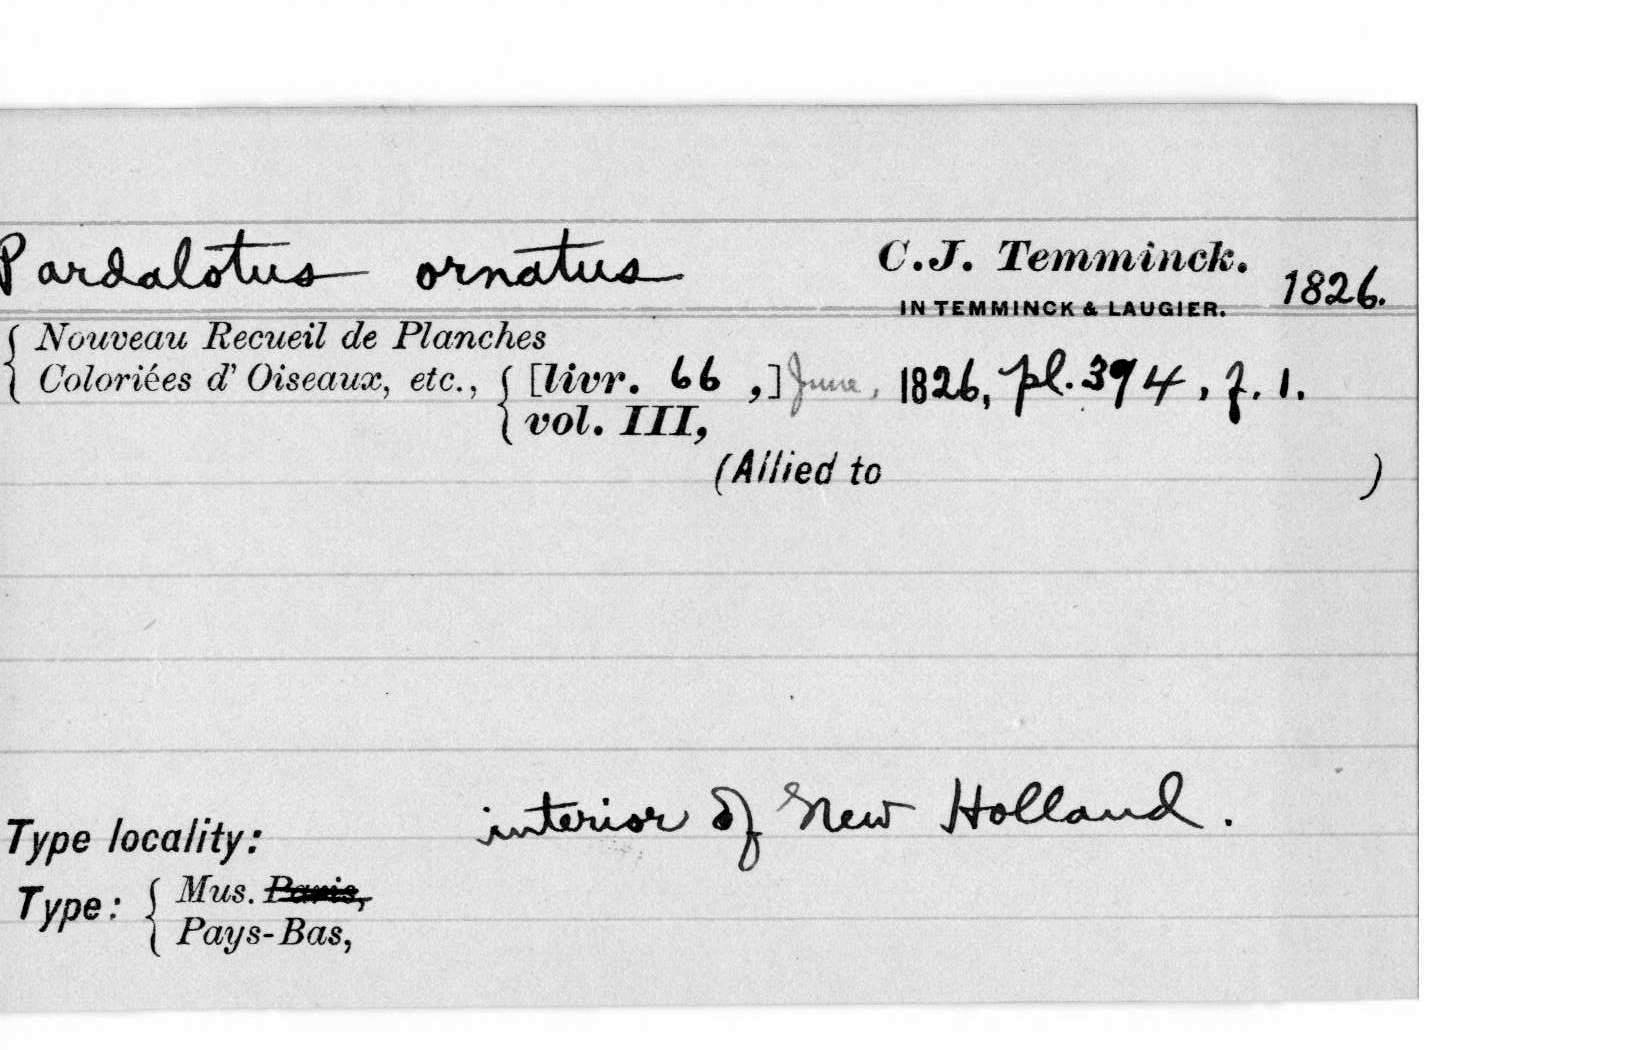 Pardalotus ornatus C.J. Temminck. 1826.
IN TEMMINCK & LAUGIER.
Nouveau Recueil de Planches
Coloriées d' Oiseaux, etc., [livr. 66 ,] June, 1826, pl. 394, f. 1.
vol. III,
(Allied to )
Type locality: interior of New Holland.
Type: Mus. Paris,
Pays-Bas,